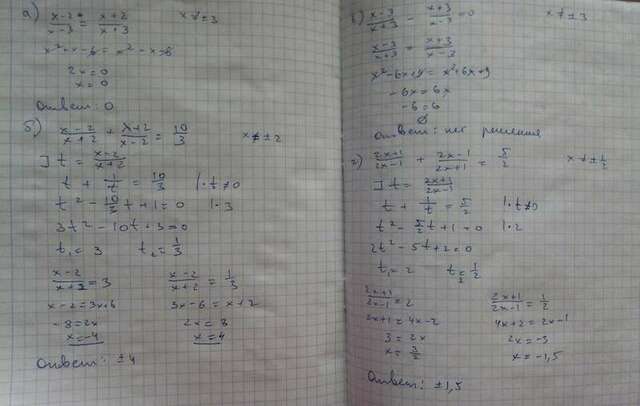 а) (x-2)/(x-3) = (x+2)/(x+3)    x ≠ ±3
x² + x - 6 = x² - x - 6
2x = 0
x = 0
Ответ: 0
б) (x-2)/(x+2) + (x+2)/(x-2) = 10/3    x ≠ ±2
] t = (x-2)/(x+2)
t + 1/t = 10/3    | · t ≠ 0
t² - 10/3 t + 1 = 0    | · 3
3t² - 10t + 3 = 0
t₁ = 3    t₂ = 1/3
(x-2)/(x+2) = 3    (x-2)/(x+2) = 1/3
x - 2 = 3x + 6    3x - 6 = x + 2
-8 = 2x    2x = 8
x = -4    x = 4
Ответ: ±4
в) (x-3)/(x+3) - (x+3)/(x-3) = 0    x ≠ ±3
(x-3)/(x+3) = (x+3)/(x-3)
x² - 6x + 9 = x² + 6x + 9
-6x = 6x
-6 = 6
∅
Ответ: нет решения
г) (2x+1)/(2x-1) + (2x-1)/(2x+1) = 5/2    x ≠ ± 1/2
] t = (2x+1)/(2x-1)
t + 1/t = 5/2    | · t ≠ 0
t² - 5/2 t + 1 = 0    | · 2
2t² - 5t + 2 = 0
t₁ = 2    t₂ = 1/2
(2x+1)/(2x-1) = 2    (2x+1)/(2x-1) = 1/2
2x + 1 = 4x - 2    4x + 2 = 2x - 1
3 = 2x    2x = -3
x = 3/2    x = -1,5
Ответ: ±1,5